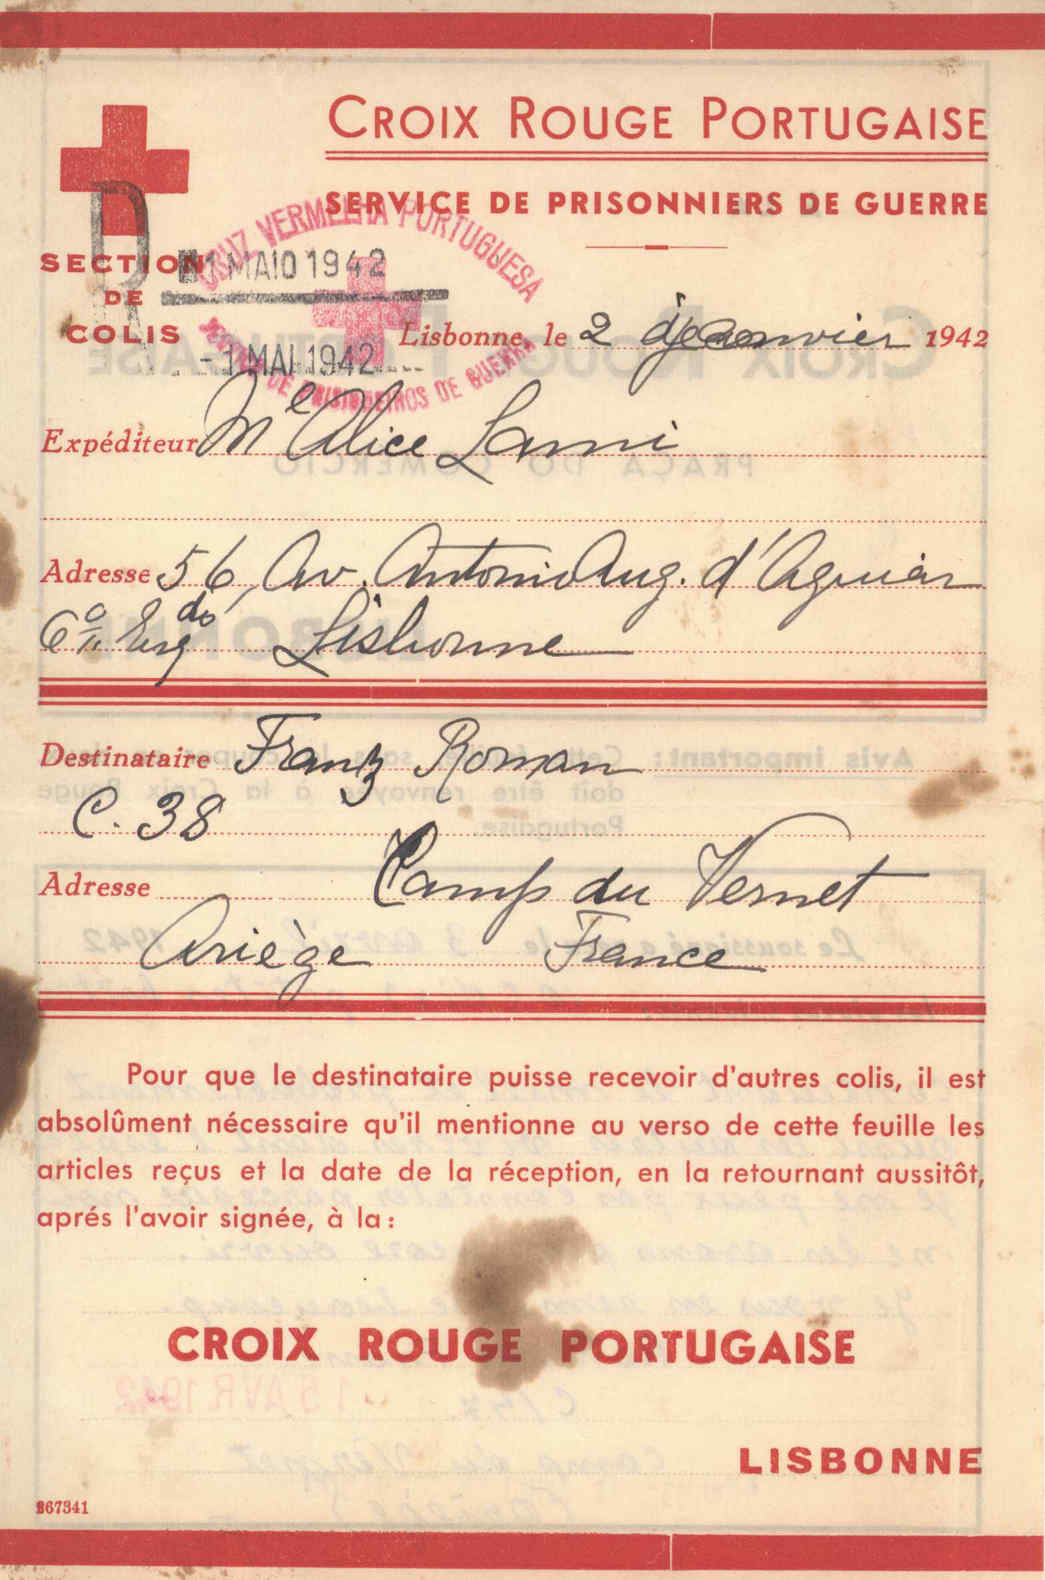 CROIX ROUGE PORTUGAISE
SERVICE DE PRISONNIERS DE GUERRE
SECTION
DE
COLIS
R
CRUZ VERMELHA PORTUGUESA
DE PRISIONEIROS DE GUERRA
1 MAIO 1942
-1 MAI 1942
Lisbonne, le 2 janvier 1942
Expéditeur Mle Alice Lami
Adresse 56, Av. Antonio Aug. d'Aguiar
6º Esqdo Lisbonne
Destinataire Franz Roman
C. 38
Adresse Camp du Vernet
Ariège France
Pour que le destinataire puisse recevoir d'autres colis, il est
absolûment nécessaire qu'il mentionne au verso de cette feuille les
articles reçus et la date de la réception, en la retournant aussitôt,
aprés l'avoir signée, à la:
CROIX ROUGE PORTUGAISE
LISBONNE
867341